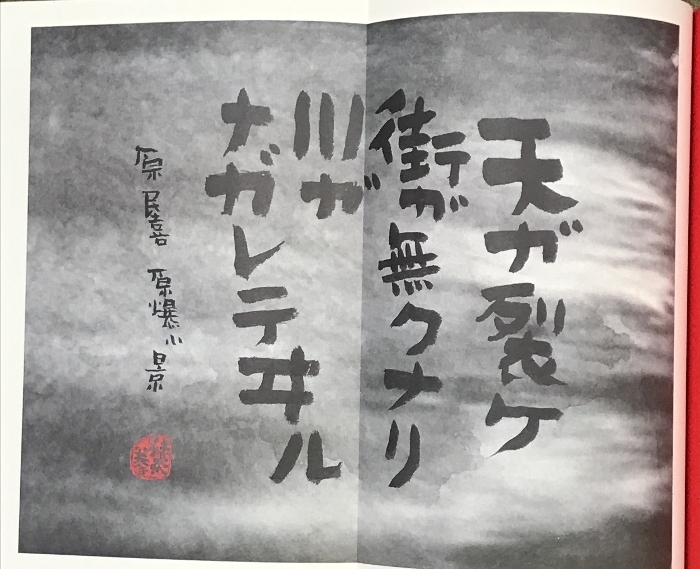 天ガ裂ケ
街ガ無クナリ
川ガ
ナガレテヰル
原民喜 原爆小景